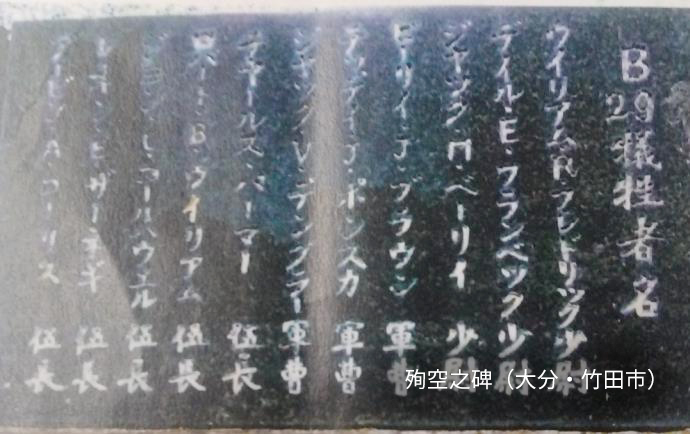 B29犠牲者名
ウイリアム・R・フレドリックス少尉
デイル・E・プランベック少尉
ジャック・M・ベーリイ 少尉
ヒリイ・J・ブラウン 軍曹
テッディ・J・ポンスカ 軍曹
ジャック・V・デングラー 軍曹
チャールス・パーマー 伍長
ロバート・B・ウイリアム 伍長
ジョン・C・コールハウエル 伍長
レオン・E・ザーネキ 伍長
・A・コーリス 伍長
殉空之碑（大分・竹田市）